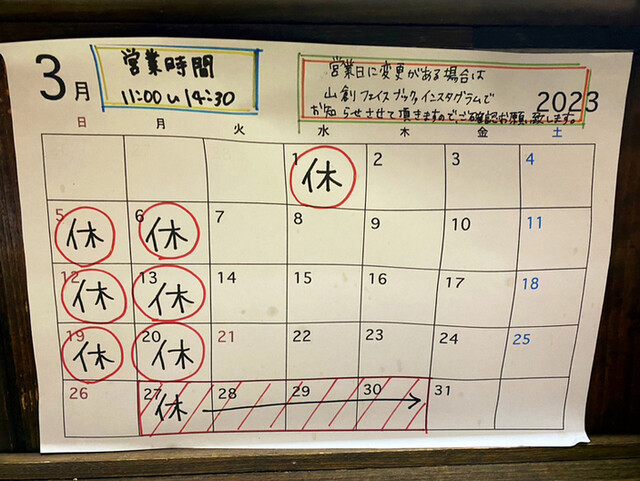 3月
営業時間
11:00〜14:30
営業日に変更がある場合は
山創フェイスブック,インスタグラムで
お知らせさせて頂きますので、ご確認お願い致します。
2023
日 月 火 水 木 金 土
1 休 2 3 4
5 休 6 休 7 8 9 10 11
12 休 13 休 14 15 16 17 18
19 休 20 休 21 22 23 24 25
26 27 休 28 29 30 31